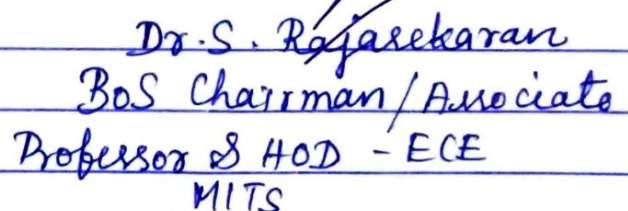 Dr. S. Rajasekaran
BoS Chairman / Associate
Professor & HOD - ECE
MITS